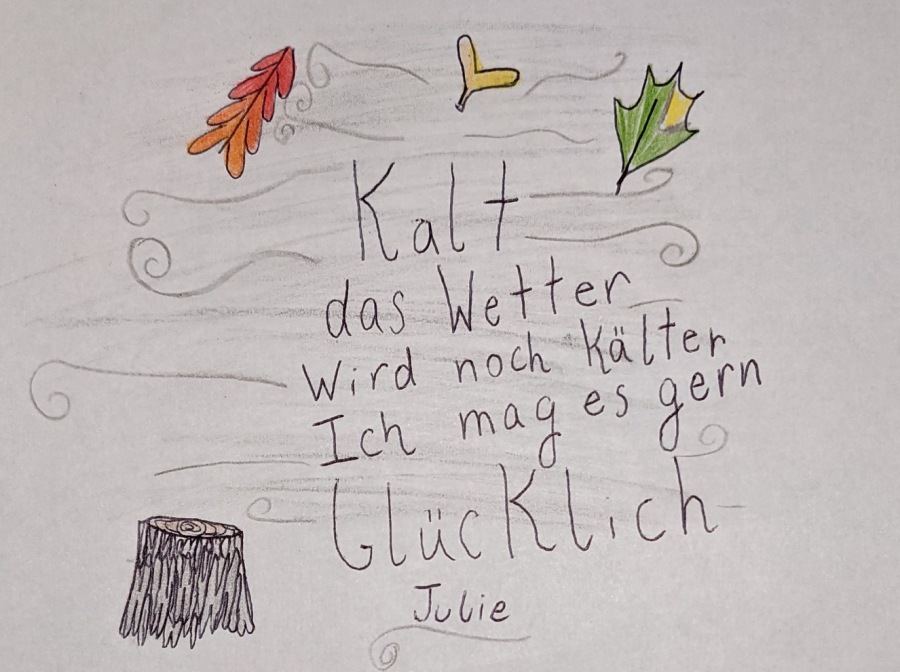 Kalt
das Wetter
Wird noch Kälter
Ich mag es gern
GlücKlich
Julie